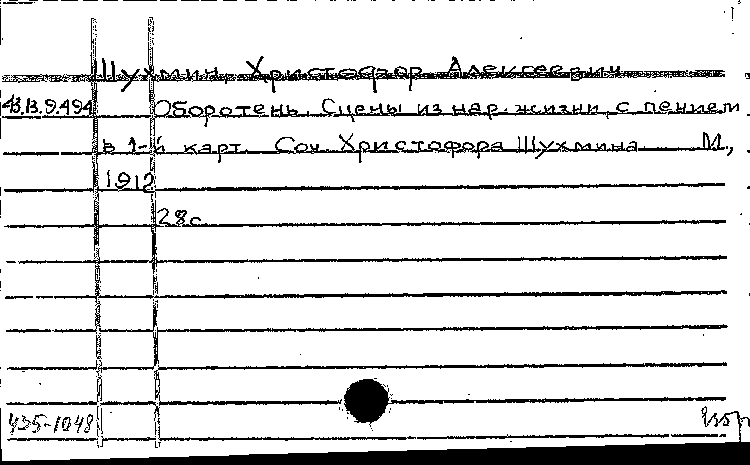 Шухмин, Христофор Алексеевич
43.13.9.494 Оборотень. Сцены из нар. жизни, с пением
в 1-й карт. Соч. Христофора Шухмина М.,
1912
28с.
435-1048